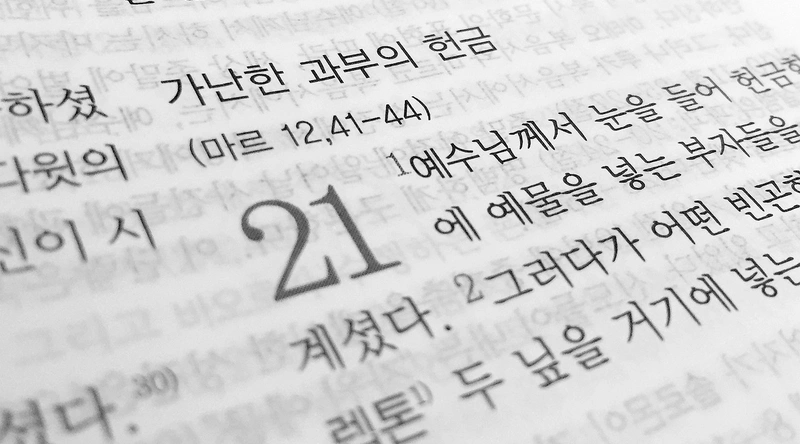 하셨
다윗의
신이 시
셨다.30)
가난한 과부의 헌금
(마르 12,41-44)
21 1예수님께서 눈을 들어 헌금함
에 예물을 넣는 부자들을
계셨다. 2그러다가 어떤 빈곤한
렙톤1) 두 닢을 거기에 넣는